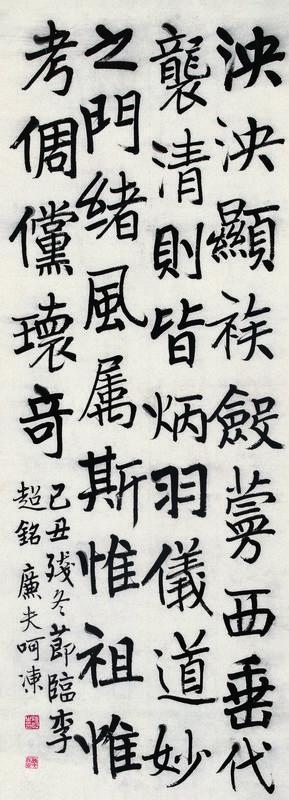 泱泱顯族斂萼西垂代
襲清則皆炳羽儀道妙
之門緒風属斯惟祖惟
考倜儻瓌竒
己丑殘冬節臨李
超銘 廉夫呵凍